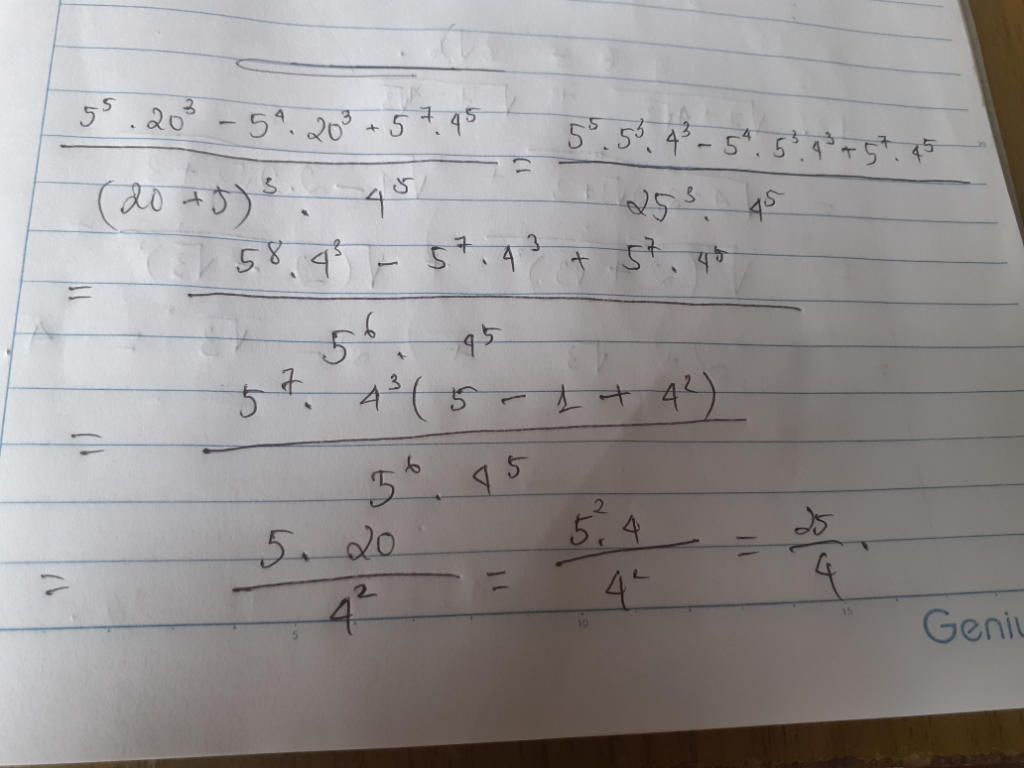 5⁵ . 20³ - 5⁴ . 20³ + 5⁷ . 4⁵ / (20 + 5)³ . 4⁵ = 5⁵ . 5³ . 4³ - 5⁴ . 5³ . 4³ + 5⁷ . 4⁵ / 25³ . 4⁵
= 5⁸ . 4³ - 5⁷ . 4³ + 5⁷ . 4⁵ / 5⁶ . 4⁵
= 5⁷ . 4³ ( 5 - 1 + 4² ) / 5⁶ . 4⁵
= 5 . 20 / 4² = 5² . 4 / 4² = 25 / 4 .
5 10 15